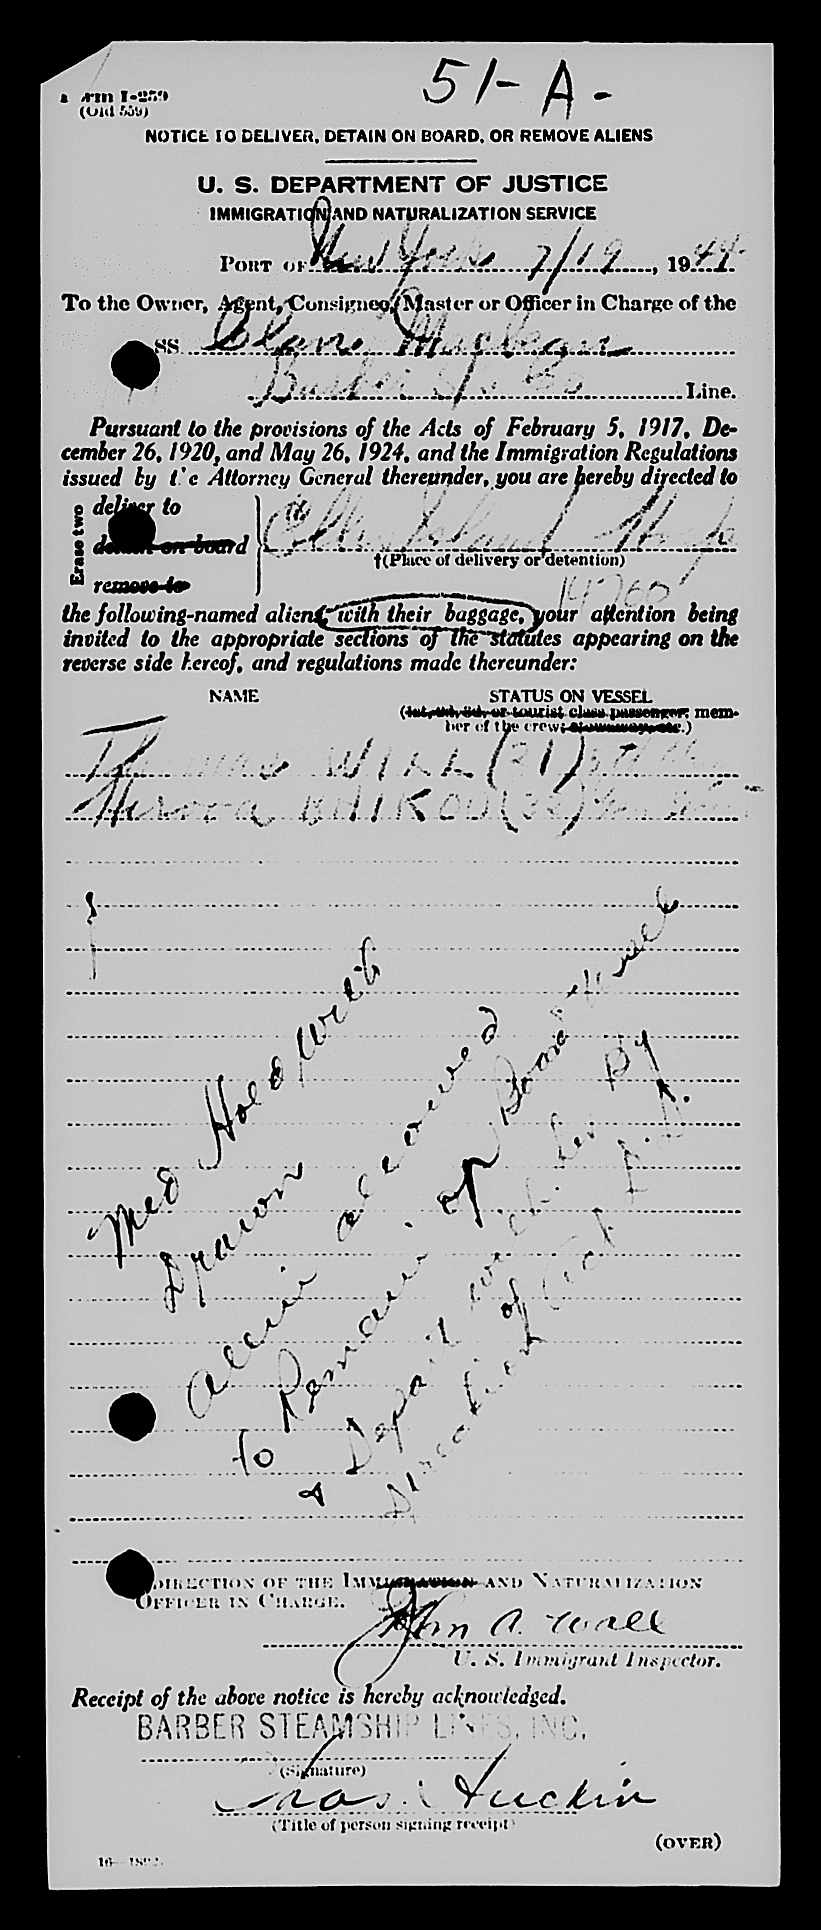 51-A-
Form I-259
(Old 559)
NOTICE TO DELIVER, DETAIN ON BOARD, OR REMOVE ALIENS
U. S. DEPARTMENT OF JUSTICE
IMMIGRATION AND NATURALIZATION SERVICE
PORT OF New York 7/19, 1944
To the Owner, Agent, Consignee, Master or Officer in Charge of the
SS. Clan
Barber S/S Co Line.
Pursuant to the provisions of the Acts of February 5, 1917, De-
cember 26, 1920, and May 26, 1924, and the Immigration Regulations
issued by the Attorney General thereunder, you are hereby directed to
Erase two
deliver to
detain on board
remove to
Ellis Island Hosp
†(Place of delivery or detention)
14760
the following-named aliens, with their baggage, your attention being
invited to the appropriate sections of the statutes appearing on the
reverse side hereof, and regulations made thereunder:
NAME
STATUS ON VESSEL
(1st, 2d, 3d, or tourist class passenger, mem-
ber of the crew, stowaway, etc.)
Thomas WILL (21)
(32)
Med Hold With
Drawn
Alien allowed
to Remain on Board Vessel
& Depart with her by
Direction of Act D.D.
DIRECTION OF THE IMMIGRATION AND NATURALIZATION
OFFICER IN CHARGE.
John A. Wall
U. S. Immigrant Inspector.
Receipt of the above notice is hereby acknowledged.
BARBER STEAMSHIP LINES, INC.
(Signature)
Chas.
(Title of person signing receipt)
(OVER)